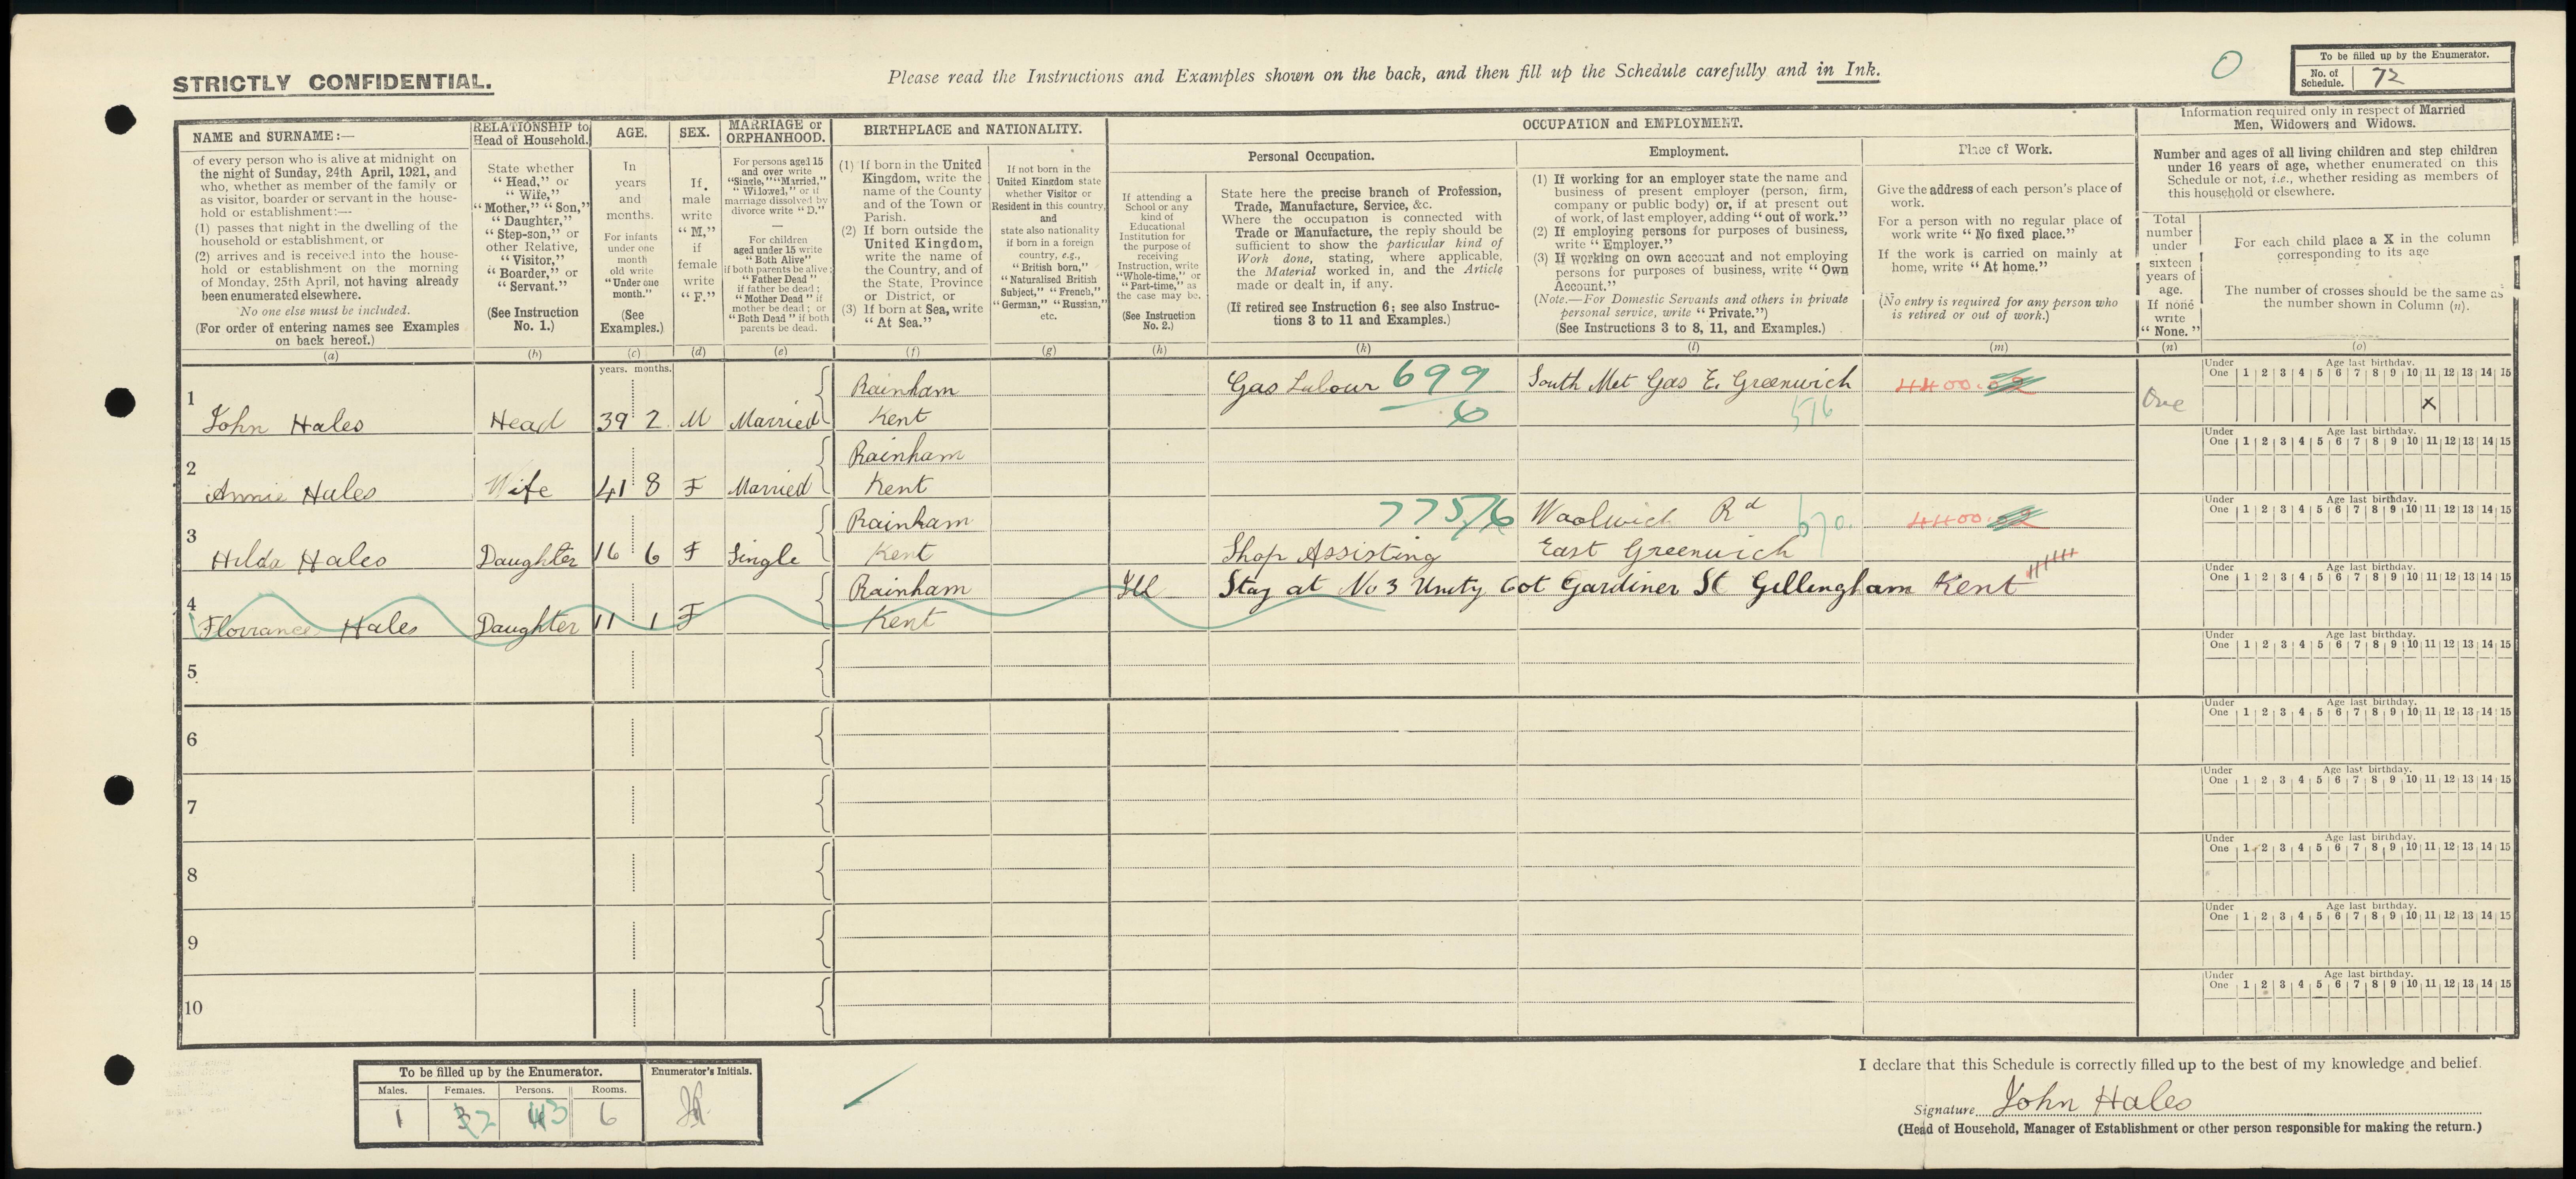 STRICTLY CONFIDENTIAL.
Please read the Instructions and Examples shown on the back, and then fill up the Schedule carefully and in Ink.
0
To be filled up by the Enumerator.
No. of Schedule. 72
NAME and SURNAME:—
of every person who is alive at midnight on
the night of Sunday, 24th April, 1921, and
who, whether as member of the family or
as visitor, boarder or servant in the house-
hold or establishment:—
(1) passes that night in the dwelling of the
household or establishment, or
(2) arrives and is received into the house-
hold or establishment on the morning
of Monday, 25th April, not having already
been enumerated elsewhere.
No one else must be included.
(For order of entering names see Examples
on back hereof.)
(a)
RELATIONSHIP to
Head of Household.
State whether
"Head," or
"Wife,"
"Mother," "Son,"
"Daughter,"
"Step-son," or
other Relative,
"Visitor,"
"Boarder," or
"Servant."
(See Instruction
No. 1.)
(b)
AGE.
In
years
and
months.
For infants
under one
month
old write
"Under one
month."
(See
Examples.)
(c)
SEX.
If
male
write
"M,"
if
female
write
"F."
(d)
MARRIAGE or
ORPHANHOOD.
For persons aged 15
and over write
"Single," "Married,"
"Widowed," or if
marriage dissolved by
divorce write "D."
—
For children
aged under 15 write
"Both Alive"
if both parents be alive;
"Father Dead"
if father be dead;
"Mother Dead" if
mother be dead; or
"Both Dead" if both
parents be dead.
(e)
BIRTHPLACE and NATIONALITY.
(1) If born in the United
Kingdom, write the
name of the County
and of the Town or
Parish.
(2) If born outside the
United Kingdom,
write the name of
the Country, and of
the State, Province
or District, or
(3) If born at Sea, write
"At Sea."
(f)
If not born in the
United Kingdom state
whether Visitor or
Resident in this country,
and
state also nationality
if born in a foreign
country, e.g.,
"British born,"
"Naturalised British
Subject," "French,"
"German," "Russian,"
etc.
(g)
OCCUPATION and EMPLOYMENT.
Personal Occupation.
If attending a
School or any
kind of
Educational
Institution for
the purpose of
receiving
Instruction, write
"Whole-time," or
"Part-time," as
the case may be.
(See Instruction
No. 2.)
(h)
State here the precise branch of Profession,
Trade, Manufacture, Service, &c.
Where the occupation is connected with
Trade or Manufacture, the reply should be
sufficient to show the particular kind of
Work done, stating, where applicable,
the Material worked in, and the Article
made or dealt in, if any.
(If retired see Instruction 6; see also Instruc-
tions 3 to 11 and Examples.)
(k)
Employment.
(1) If working for an employer state the name and
business of present employer (person, firm,
company or public body) or, if at present out
of work, of last employer, adding "out of work."
(2) If employing persons for purposes of business,
write "Employer."
(3) If working on own account and not employing
persons for purposes of business, write "Own
Account."
(Note.—For Domestic Servants and others in private
personal service, write "Private.")
(See Instructions 3 to 8, 11, and Examples.)
(l)
Place of Work.
Give the address of each person's place of
work.
For a person with no regular place of
work write "No fixed place."
If the work is carried on mainly at
home, write "At home."
(No entry is required for any person who
is retired or out of work.)
(m)
Information required only in respect of Married
Men, Widowers and Widows.
Number and ages of all living children and step children
under 16 years of age, whether enumerated on this
Schedule or not, i.e., whether residing as members of
this household or elsewhere.
Total
number
under
sixteen
years of
age.
If none
write
"None."
(n)
For each child place a X in the column
corresponding to its age
The number of crosses should be the same as
the number shown in Column (n).
(o)
years. months.
Under One Age last birthday. 1 2 3 4 5 6 7 8 9 10 11 12 13 14 15
1 John Hales Head 39 2 M Married Rainham Kent Gas Labour 699 6 South Met Gas E. Greenwich 516 4400.02 One x
Under One Age last birthday. 1 2 3 4 5 6 7 8 9 10 11 12 13 14 15
2 Annie Hales Wife 41 8 F Married Rainham Kent
Under One Age last birthday. 1 2 3 4 5 6 7 8 9 10 11 12 13 14 15
3 Hilda Hales Daughter 16 6 F Single Rainham Kent Shop Assisting 775/6 Woolwich Rd East Greenwich 670. 4400.02
Under One Age last birthday. 1 2 3 4 5 6 7 8 9 10 11 12 13 14 15
4 Florrance Hales Daughter 11 1 F Rainham Kent Ill Stay at No 3 Unity Cot Gardiner St Gillingham Kent
Under One Age last birthday. 1 2 3 4 5 6 7 8 9 10 11 12 13 14 15
5
Under One Age last birthday. 1 2 3 4 5 6 7 8 9 10 11 12 13 14 15
6
Under One Age last birthday. 1 2 3 4 5 6 7 8 9 10 11 12 13 14 15
7
Under One Age last birthday. 1 2 3 4 5 6 7 8 9 10 11 12 13 14 15
8
Under One Age last birthday. 1 2 3 4 5 6 7 8 9 10 11 12 13 14 15
9
Under One Age last birthday. 1 2 3 4 5 6 7 8 9 10 11 12 13 14 15
10
Under One Age last birthday. 1 2 3 4 5 6 7 8 9 10 11 12 13 14 15
To be filled up by the Enumerator.
Males. Females. Persons. Rooms.
1 3 2 4 3 6
Enumerator's Initials.
I declare that this Schedule is correctly filled up to the best of my knowledge and belief.
Signature John Hales
(Head of Household, Manager of Establishment or other person responsible for making the return.)